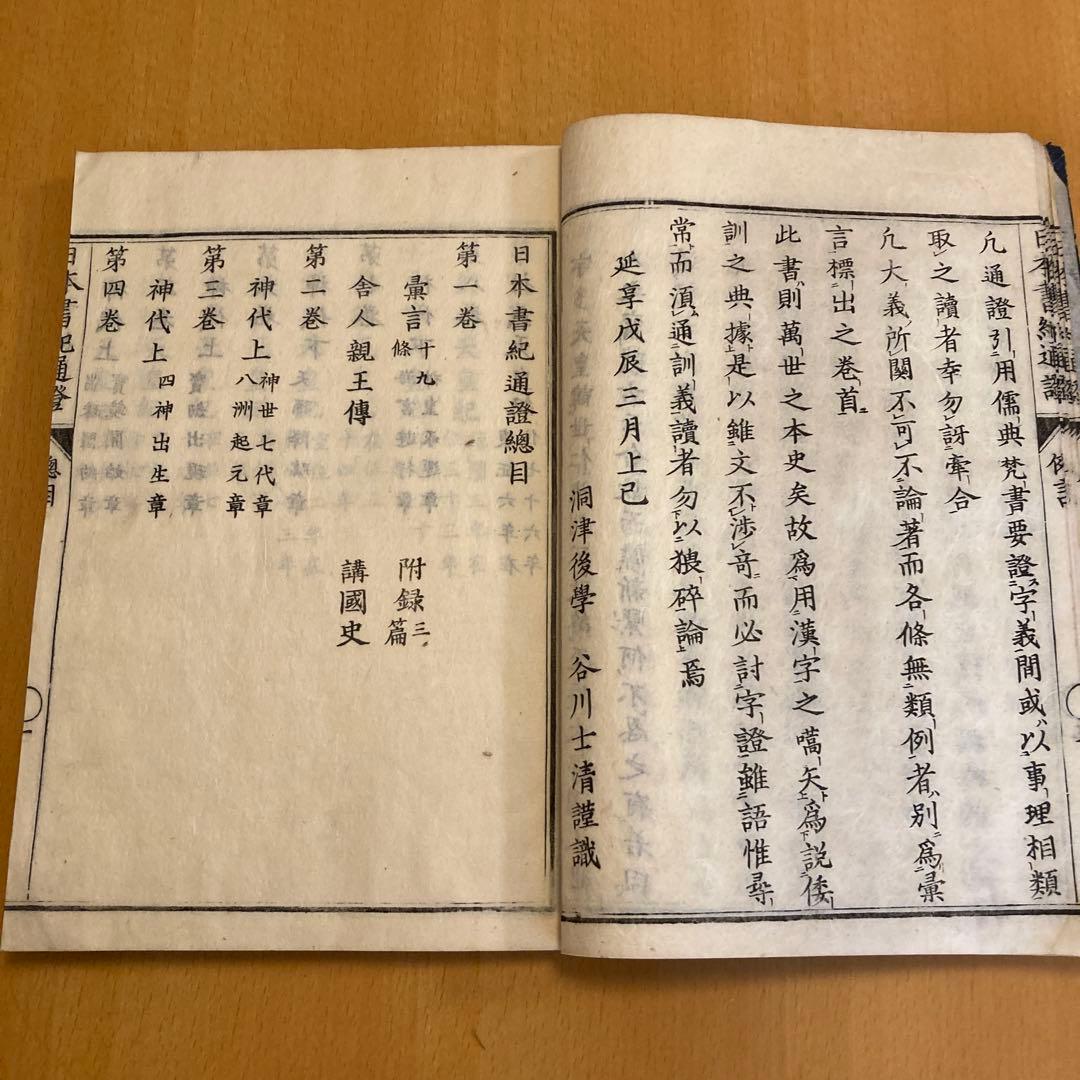 凢通證引用儒典梵書要證字義間或以事理相類
取之讀者幸勿訝牽合
凢大義所關不可不論著而各條無類例者別爲彙
言標出之卷首
此書則萬世之本史矣故爲用漢字之嚆矢爲説倭
訓之典據是以雖文不渉竒而必討字證雖語惟尋
常而湏通訓義讀者勿以猥碎論焉
延享戊辰三月上巳
洞津後學 谷川士清謹識
日本書紀通證總目
第一卷
彙言十九條 附録三篇
舎人親王傳 講國史
第二卷
神代上 神世七代章 八洲起元章
第三卷
神代上 四神出生章
第四卷
日本書紀通證 總目